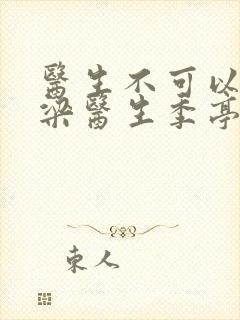 醫生不可以
梁醫生季亭
東人